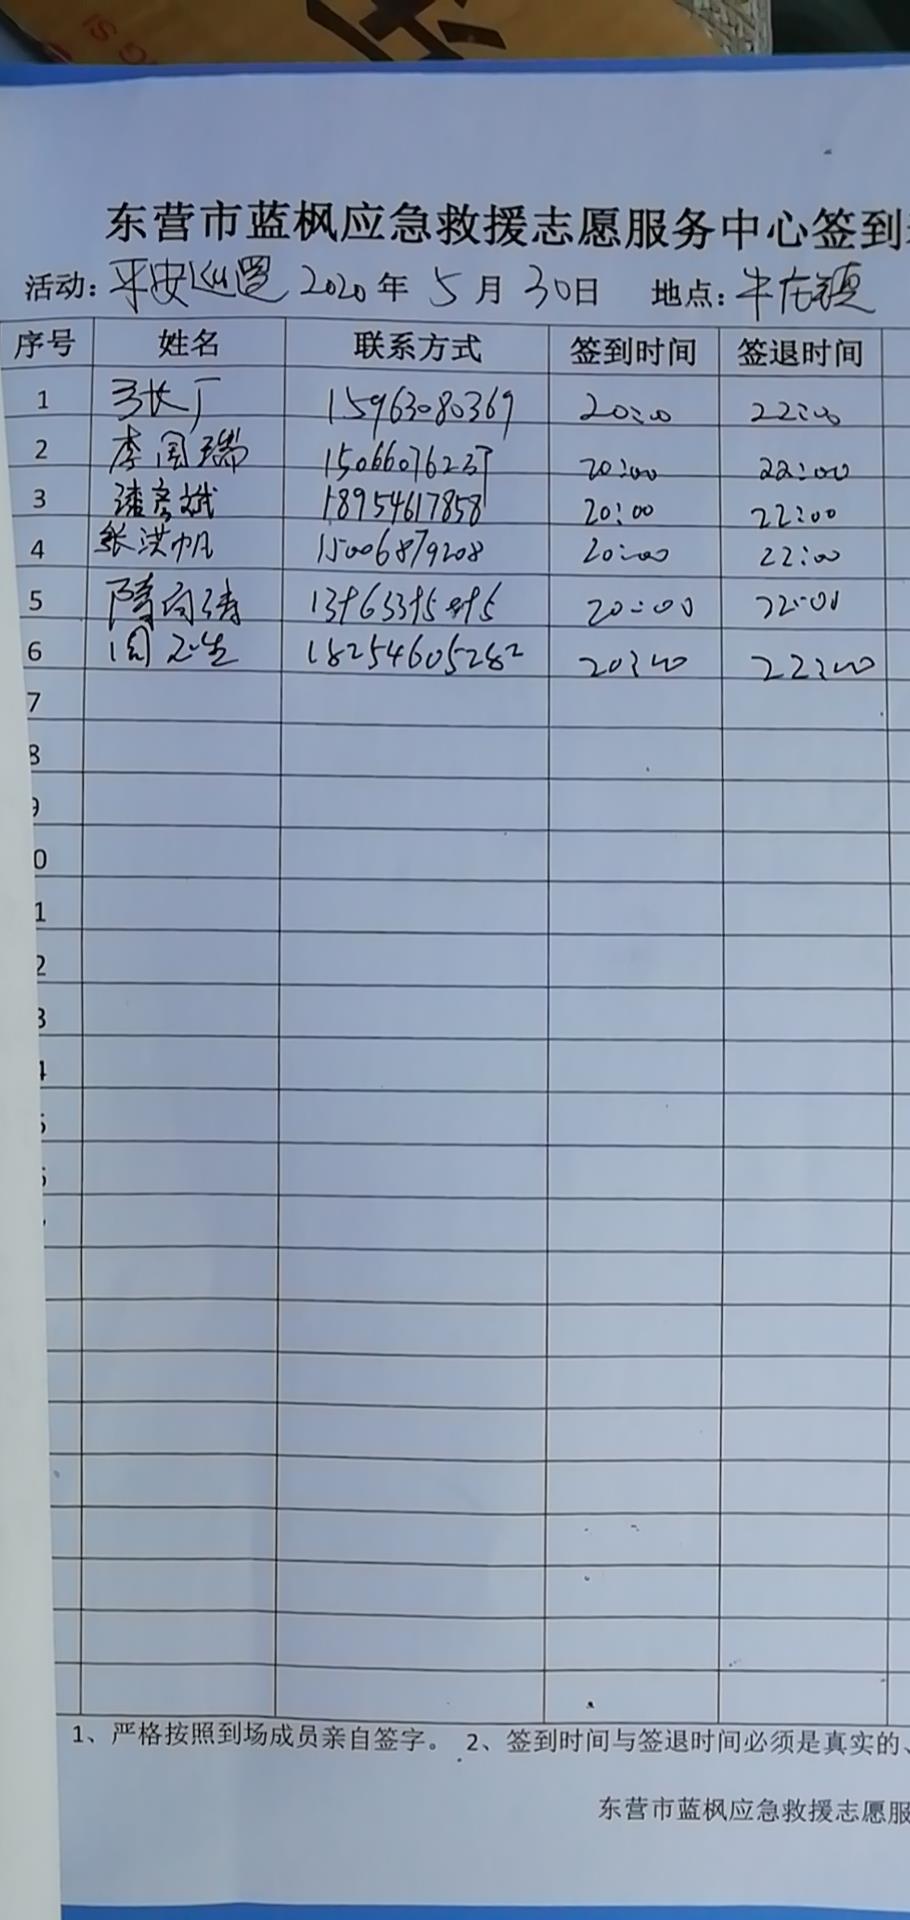 东营市蓝枫应急救援志愿服务中心签到
活动: 平安巡逻 2020年 5月 30日 地点: 牛庄镇
序号 姓名 联系方式 签到时间 签退时间
1 15963080369 20:00 22:00
2 李国瑞 15066076237 20:00 22:00
3 彦斌 18954617858 20:00 22:00
4 张洪帆 15006879208 20:00 22:00
5 隋向涛 20:00 22:00
6 周志生 18254605282 20:00 22:00
7
8
9
0
1
2
3
4
5
6
1、严格按照到场成员亲自签字。 2、签到时间与签退时间必须是真实的、
东营市蓝枫应急救援志愿服